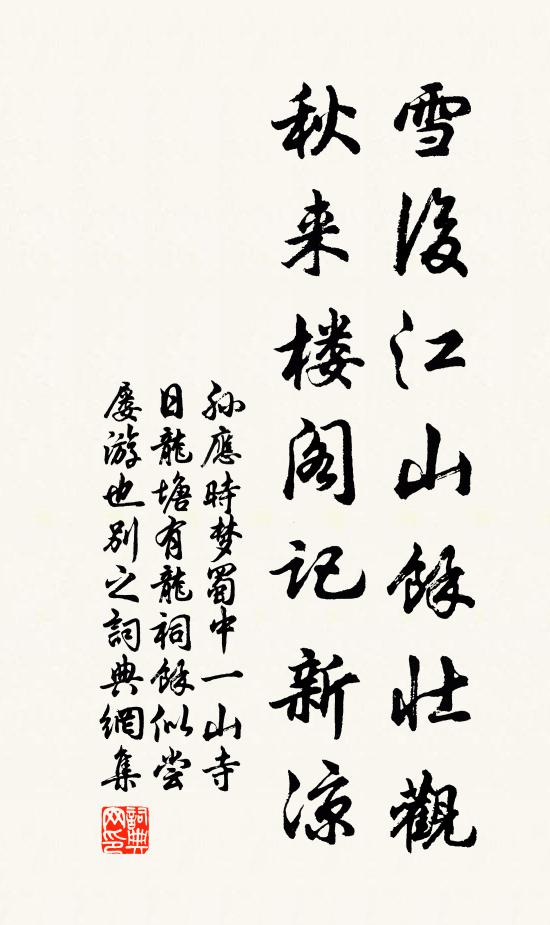 雪後江山餘壯觀
秋来楼阁记新凉
孙應時梦蜀中一山寺
日龍塘有龍祠餘似尝
屡游也别之詞典網集
詞典网印